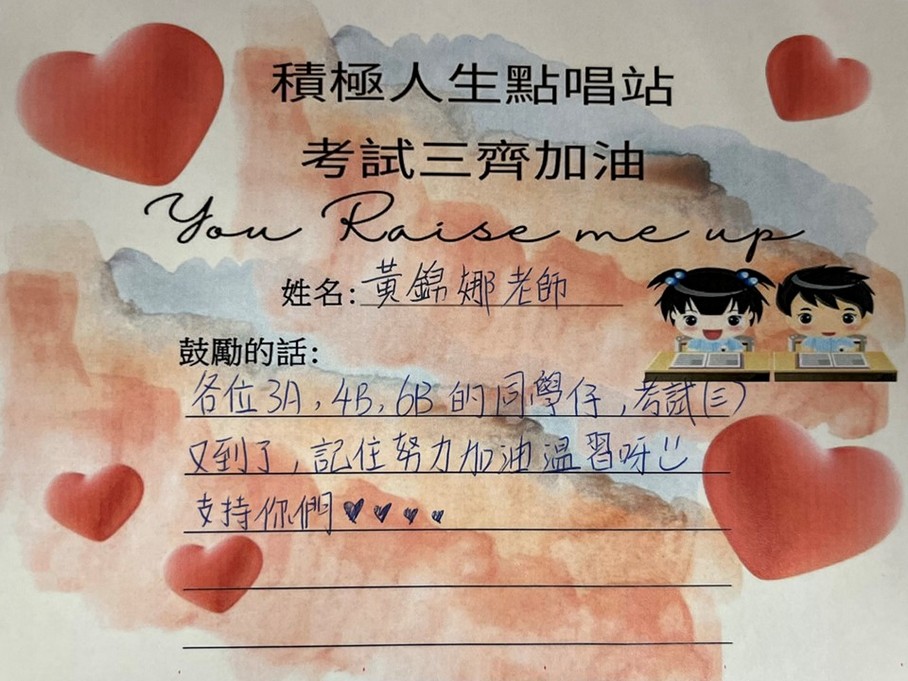 積極人生點唱站
考試三齊加油
You Raise me up
姓名:黃錦娜老師
鼓勵的話:
各位3A,4B,6B的同學仔,考試(三)
又到了,記住努力加油溫習呀
支持你們